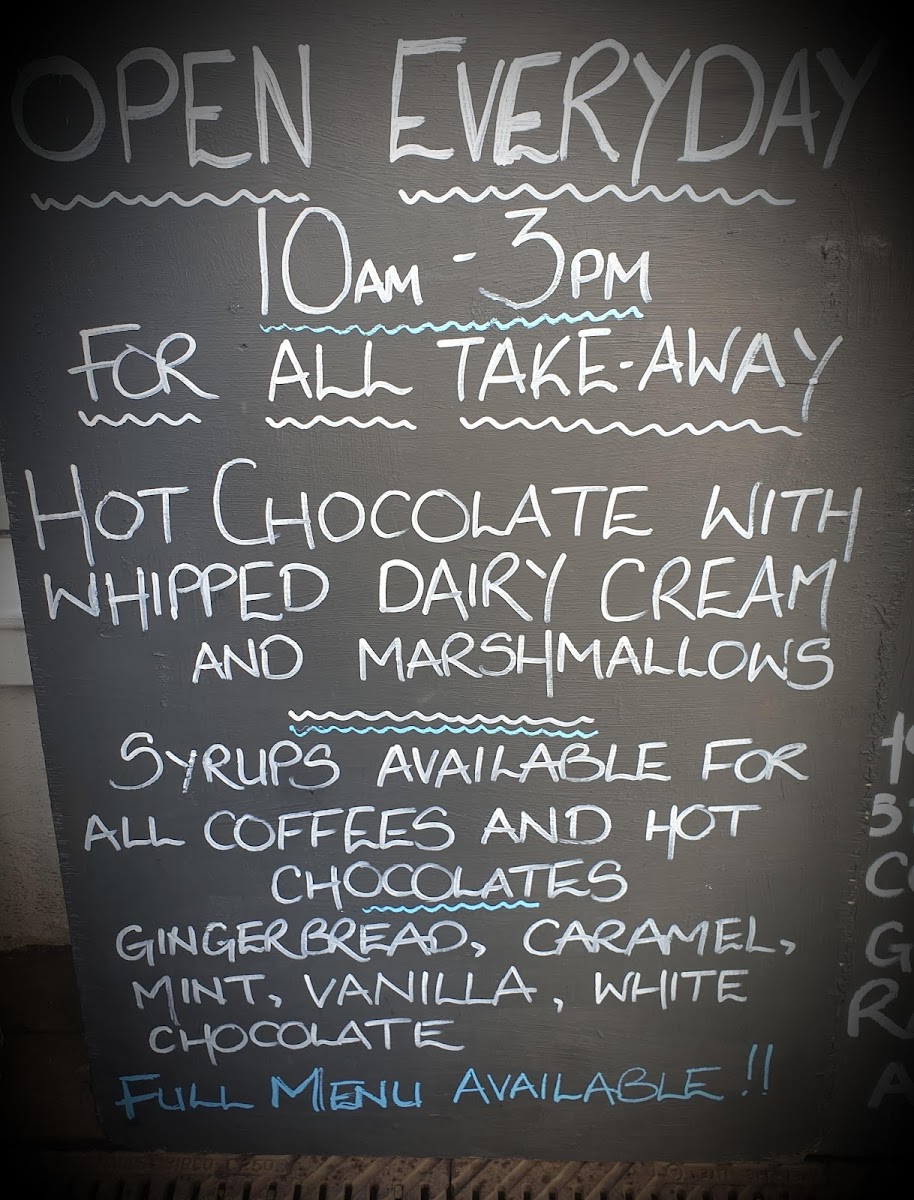 OPEN EVERYDAY
10AM - 3PM
FOR ALL TAKE-AWAY
HOT CHOCOLATE WITH
WHIPPED DAIRY CREAM
AND MARSHMALLOWS
SYRUPS AVAILABLE FOR
ALL COFFEES AND HOT
CHOCOLATES
GINGERBREAD, CARAMEL,
MINT, VANILLA, WHITE
CHOCOLATE
FULL MENU AVAILABLE!!